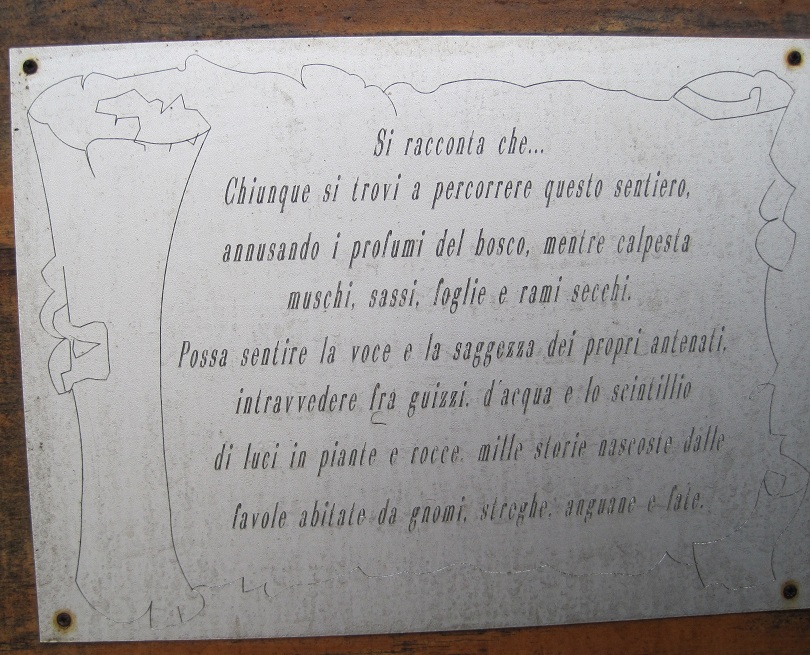 Si racconta che...
Chiunque si trovi a percorrere questo sentiero,
annusando i profumi del bosco, mentre calpesta
muschi, sassi, foglie e rami secchi.
Possa sentire la voce e la saggezza dei propri antenati,
intravvedere fra guizzi, d'acqua e lo scintillio
di luci in piante e rocce, mille storie nascoste dalle
favole abitate da gnomi, streghe, anguane e fate.